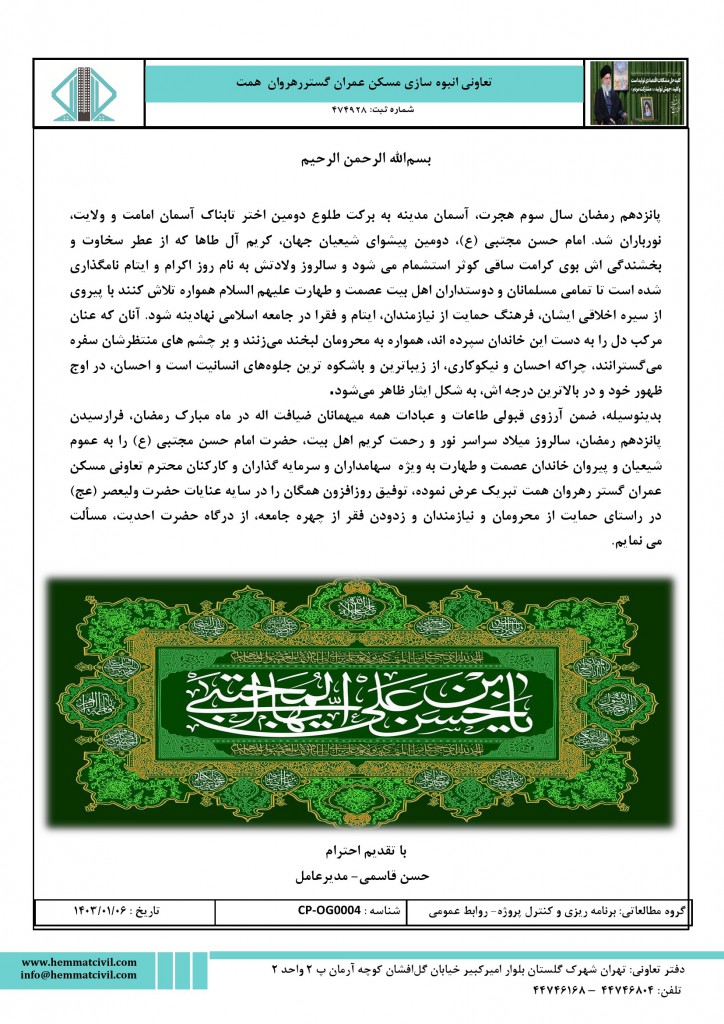 تعاونی انبوه سازی مسکن عمران گستررهروان همت
شماره ثبت: ۴۷۴۹۲۸
کلید حل مشکلات اقتصادی تولید است
و کلید «جهش تولید»، «مشارکت مردم»
بسم‌الله الرحمن الرحیم
پانزدهم رمضان سال سوم هجرت، آسمان مدینه به برکت طلوع دومین اختر تابناک آسمان امامت و ولایت،
نورباران شد. امام حسن مجتبی (ع)، دومین پیشوای شیعیان جهان، کریم آل طاها که از عطر سخاوت و
بخشندگی اش بوی کرامت ساقی کوثر استشمام می شود و سالروز ولادتش به نام روز اکرام و ایتام نامگذاری
شده است تا تمامی مسلمانان و دوستداران اهل بیت عصمت و طهارت علیهم السلام همواره تلاش کنند با پیروی
از سیره اخلاقی ایشان، فرهنگ حمایت از نیازمندان، ایتام و فقرا در جامعه اسلامی نهادینه شود. آنان که عنان
مرکب دل را به دست این خاندان سپرده اند، همواره به محرومان لبخند می‌زنند و بر چشم های منتظرشان سفره
می‌گسترانند، چراکه احسان و نیکوکاری، از زیباترین و باشکوه ترین جلوه‌های انسانیت است و احسان، در اوج
ظهور خود و در بالاترین درجه اش، به شکل ایثار ظاهر می‌شود.
بدینوسیله، ضمن آرزوی قبولی طاعات و عبادات همه میهمانان ضیافت اله در ماه مبارک رمضان، فرارسیدن
پانزدهم رمضان، سالروز میلاد سراسر نور و رحمت کریم اهل بیت، حضرت امام حسن مجتبی (ع) را به عموم
شیعیان و پیروان خاندان عصمت و طهارت به ویژه سهامداران و سرمایه گذاران و کارکنان محترم تعاونی مسکن
عمران گستر رهروان همت تبریک عرض نموده، توفیق روزافزون همگان را در سایه عنایات حضرت ولیعصر (عج)
در راستای حمایت از محرومان و نیازمندان و زدودن فقر از چهره جامعه، از درگاه حضرت احدیت، مسألت
می نمایم.
یا حسن بن علی ایها المجتبی
با تقدیم احترام
حسن قاسمی- مدیرعامل
گروه مطالعاتی: برنامه ریزی و کنترل پروژه- روابط عمومی
شناسه : CP-OG0004
تاریخ : ۱۴۰۳/۰۱/۰۶
دفتر تعاونی: تهران شهرک گلستان بلوار امیرکبیر خیابان گل‌افشان کوچه آرمان پ ۲ واحد ۲
تلفن: ۴۴۷۴۶۸۰۴ – ۴۴۷۴۶۱۶۸
www.hemmatcivil.com
info@hemmatcivil.com